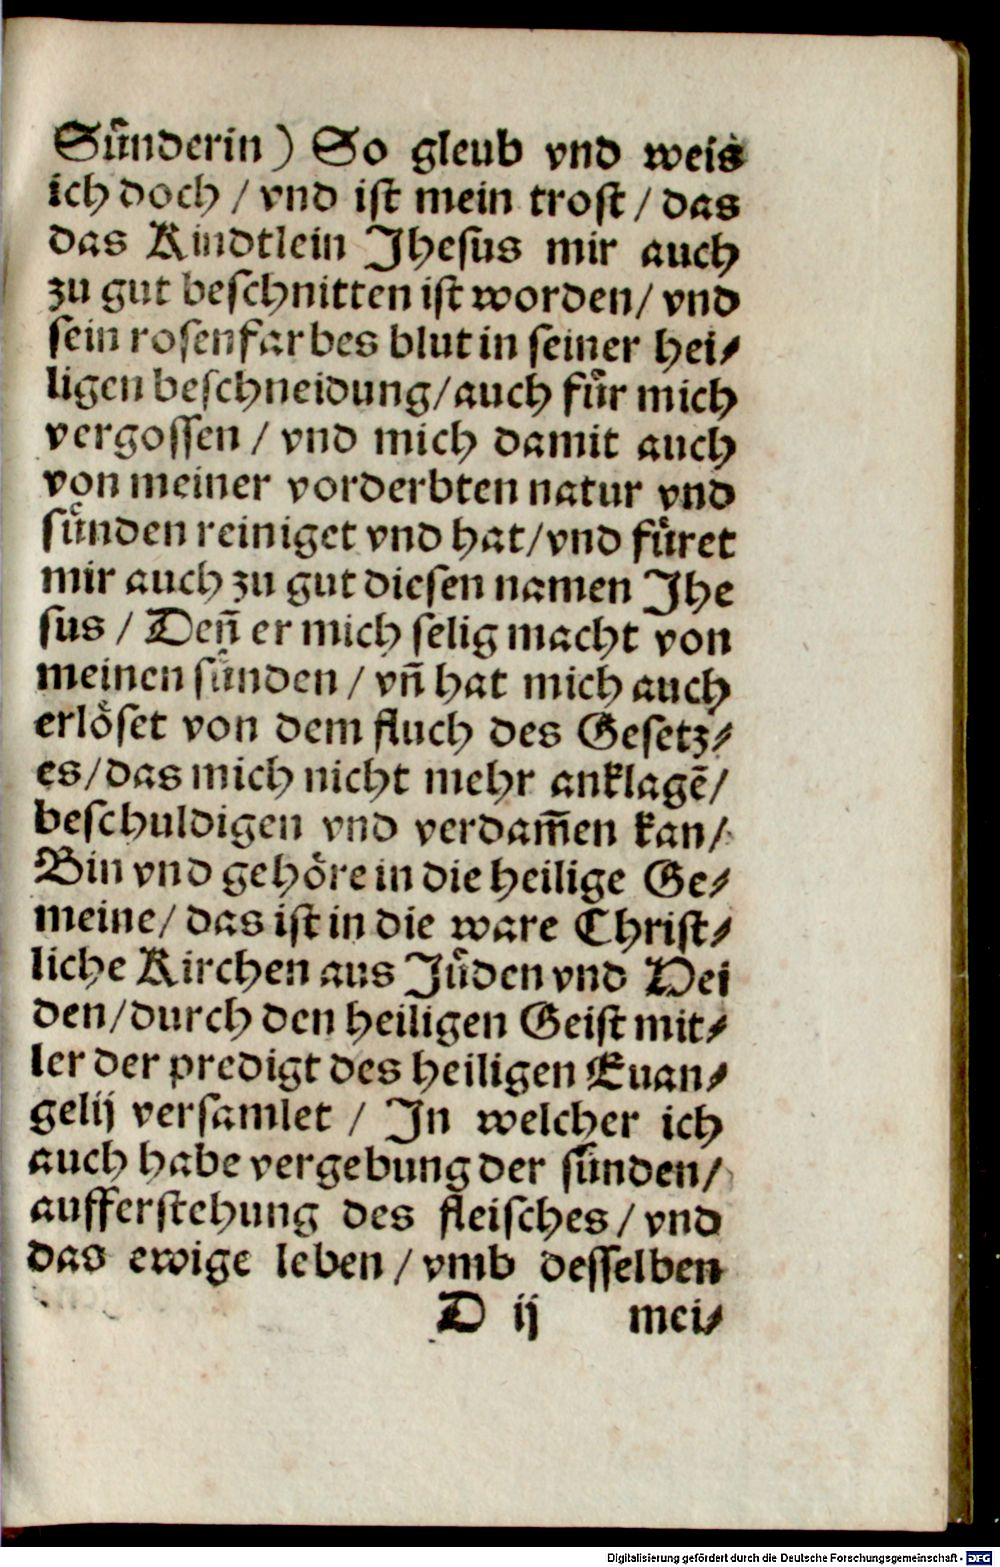 Suͤnderin) So gleub vnd weis
ich doch / vnd ist mein trost / das
das Kindtlein Jhesus mir auch
zu gut beschnitten ist worden / vnd
sein rosenfarbes blut in seiner hei⸗
ligen beschneidung / auch fuͤr mich
vergossen / vnd mich damit auch
von meiner vorderbten natur vnd
suͤnden reiniget vnd hat / vnd fuͤret
mir auch zu gut diesen namen Jhe
sus / Deñ er mich selig macht von
meinen suͤnden / vñ hat mich auch
erloͤset von dem fluch des Gesetz⸗
es / das mich nicht mehr anklagẽ /
beschuldigen vnd verdam̃en kan /
Bin vnd gehoͤre in die heilige Ge⸗
meine / das ist in die ware Christ⸗
liche Kirchen aus Juͤden vnd Hei
den / durch den heiligen Geist mit⸗
ler der predigt des heiligen Euan⸗
gelij versamlet / Jn welcher ich
auch habe vergebung der suͤnden /
aufferstehung des fleisches / vnd
das ewige leben / vmb desselben
D ij mei⸗
Digitalisierung gefördert durch die Deutsche Forschungsgemeinschaft - DFG